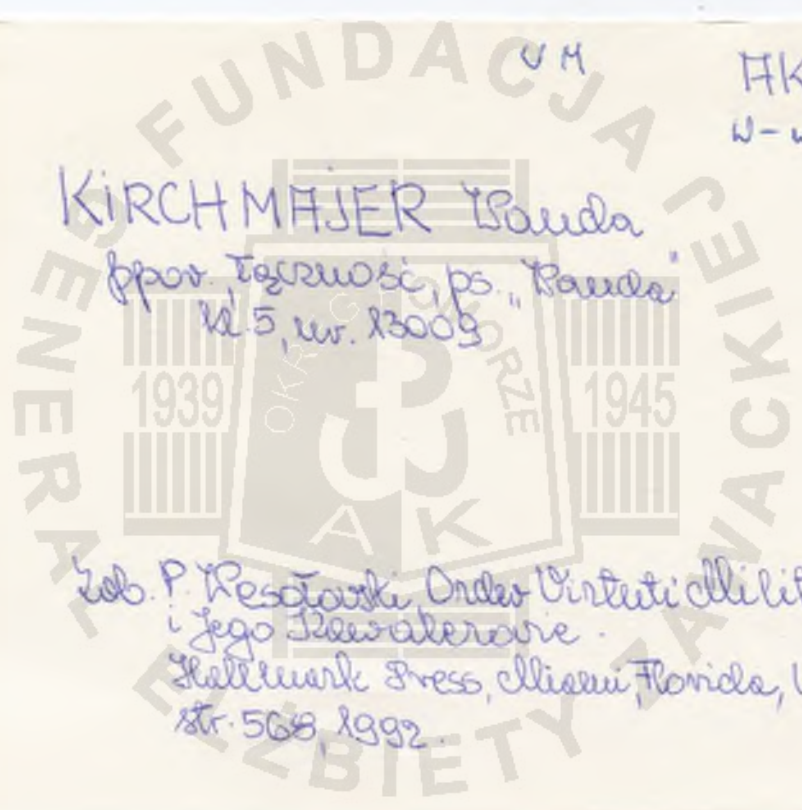 VM
AK
W-
KIRCHMAJER Wanda
ppor. Łączność, ps. „Wanda"
kl. 5, nr. 13009
Zob. P. Wesołowski, Order Virtuti Milit
i Jego Kawalerowie.
Hallmark Press, Miami, Florida, U
str. 568, 1992.
FUNDACJA GENERAŁ ELŻBIETY ZAWACKIEJ
1939
1945
OKRĘG POMORZE
AK